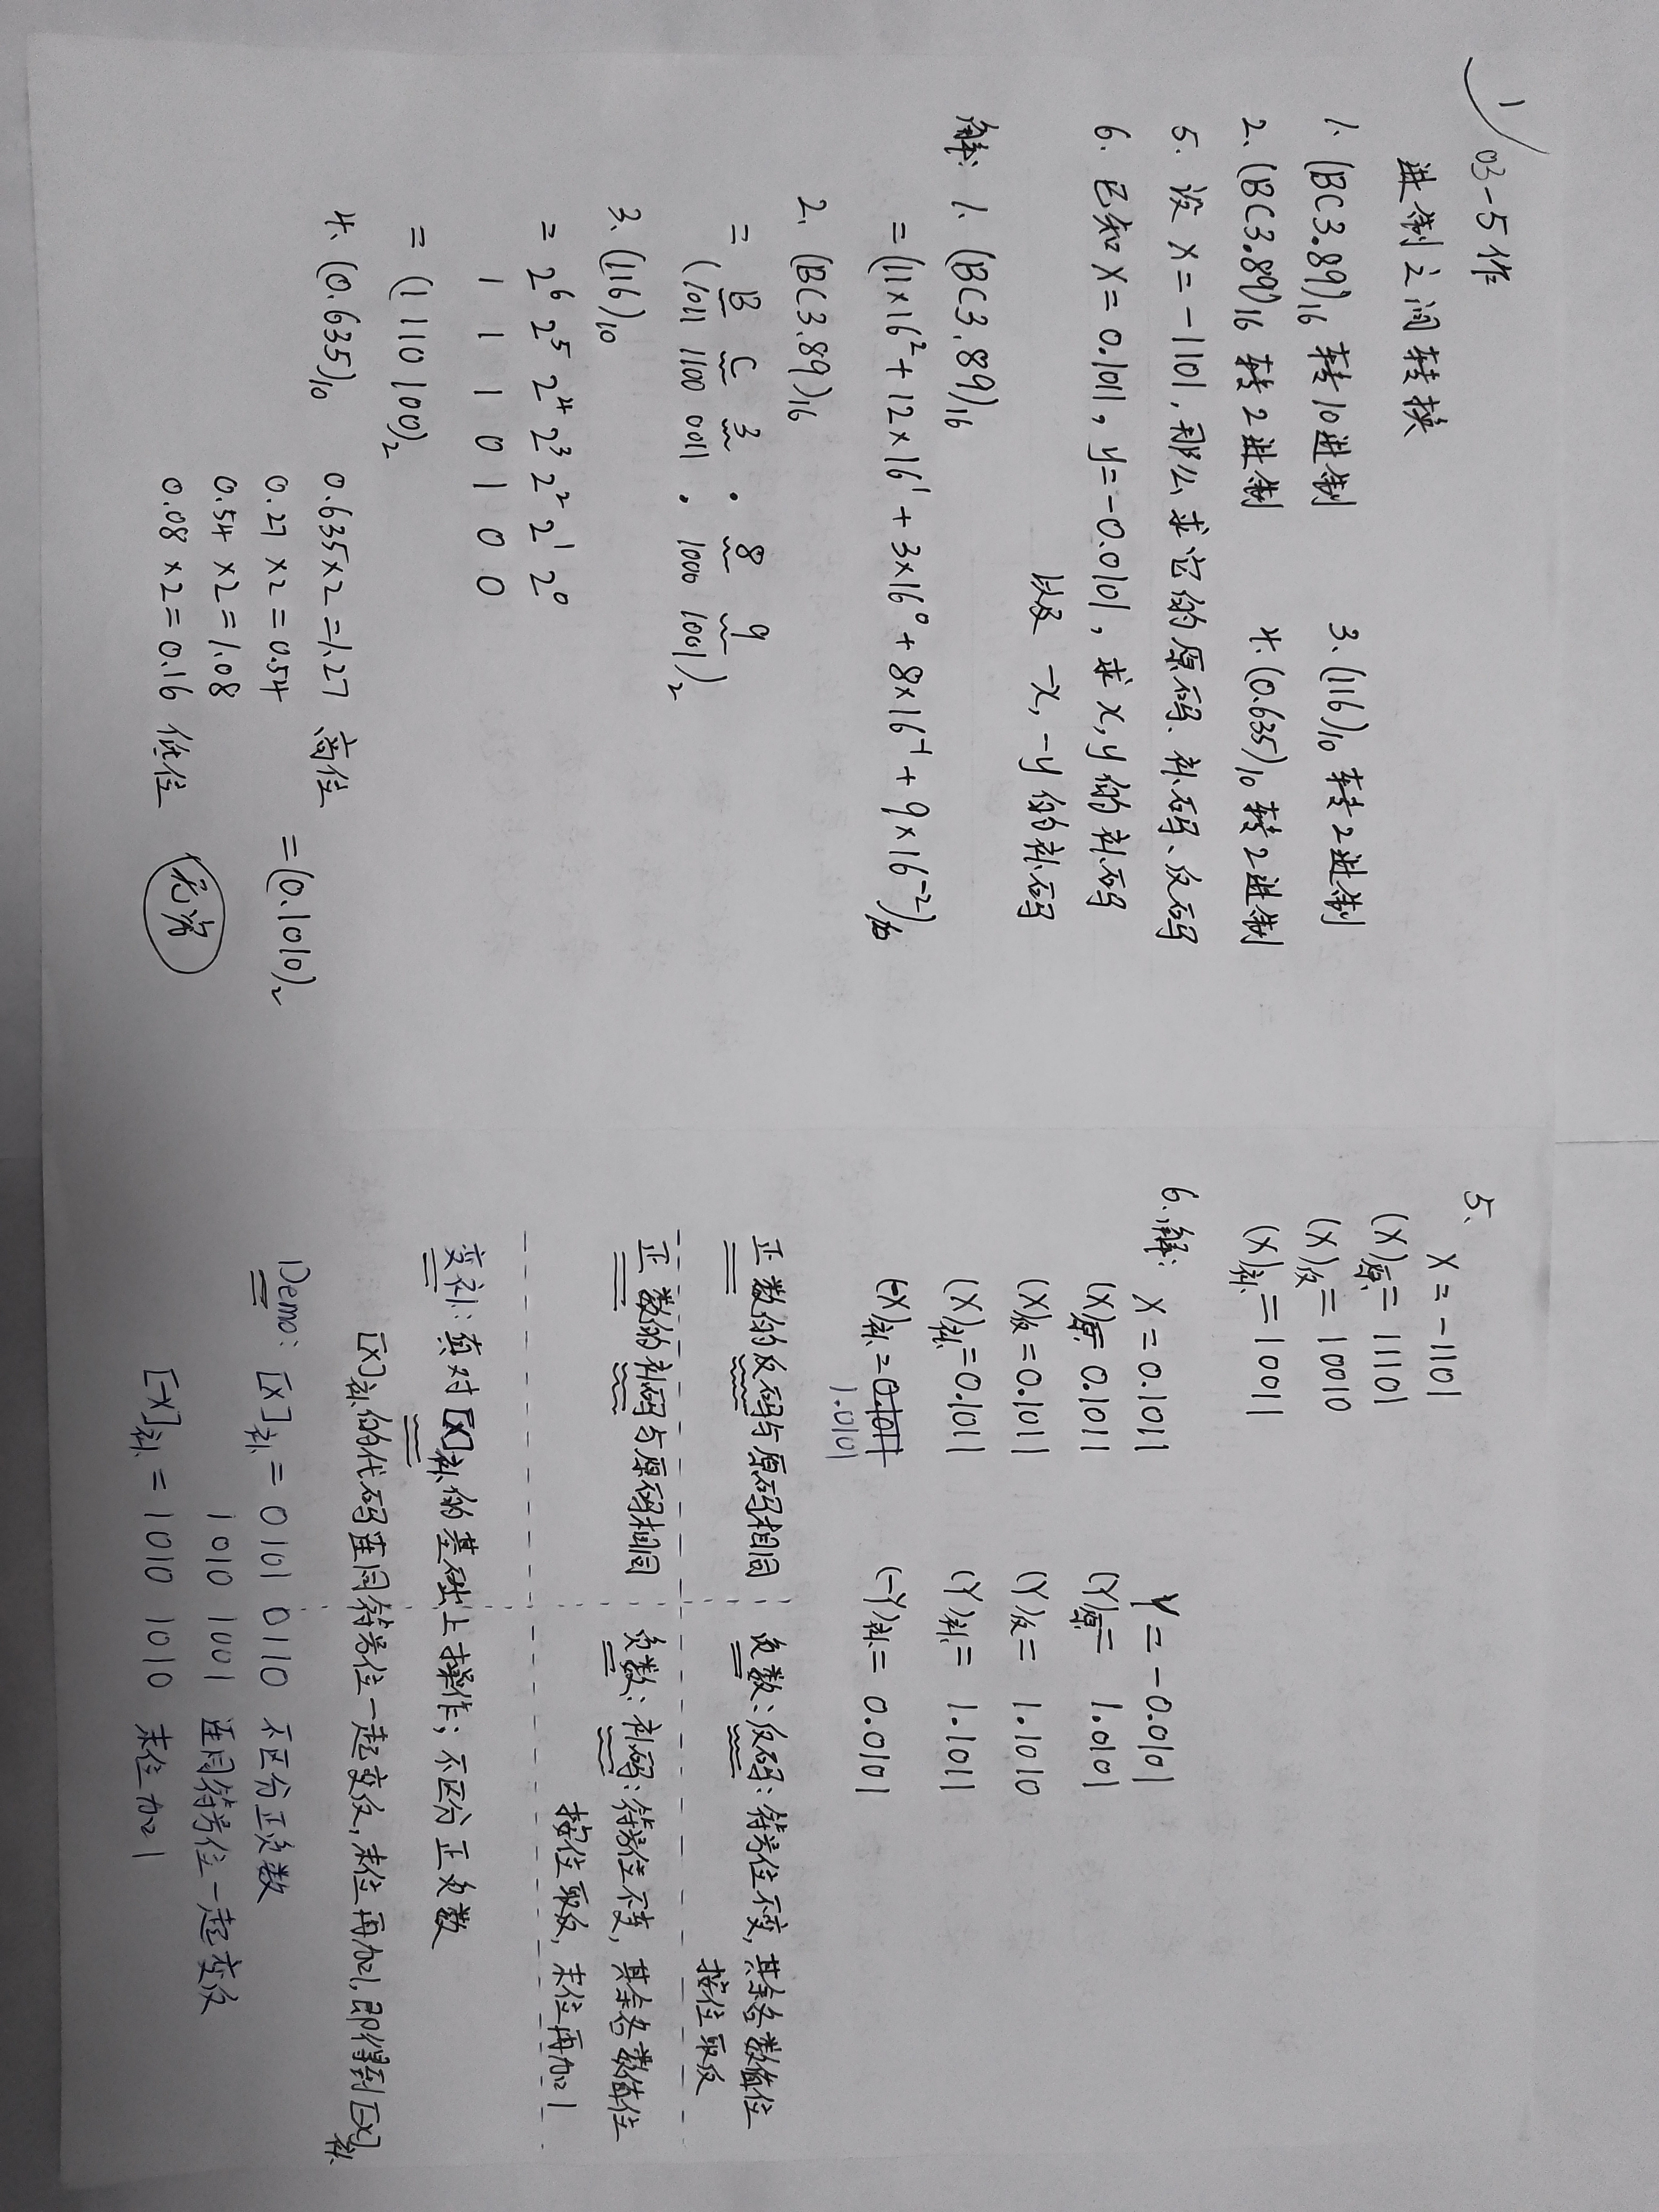 1
03-5作
进制之间转换
1. (BC3.89)₁₆ 转10进制
3. (116)₁₀ 转2进制
2. (BC3.89)₁₆ 转2进制
4. (0.635)₁₀ 转2进制
5. 设 X = -1101, 那么求它的原码、补码、反码
6. 已知 X = 0.1011, y = -0.0101, 求 x, y 的补码
以及 -x, -y 的补码
解: 1. (BC3.89)₁₆
= (11×16² + 12×16¹ + 3×16⁰ + 8×16⁻¹ + 9×16⁻²)₁₀
2. (BC3.89)₁₆
= B C 3 . 8 9
(1011 1100 0011 . 1000 1001)₂
3. (116)₁₀
= 2⁶ 2⁵ 2⁴ 2³ 2² 2¹ 2⁰
1 1 1 0 1 0 0
= (1 110 100)₂
4. (0.635)₁₀ 0.635×2=1.27 高位
0.27×2=0.54
=(0.1010)₂
0.54×2=1.08
0.08×2=0.16 低位
无穷
5.
X = -1101
(X)原 = 11101
(X)反 = 10010
(X)补 = 10011
6. 解: X = 0.1011 Y = -0.0101
(X)原 = 0.1011 (Y)原 = 1.0101
(X)反 = 0.1011 (Y)反 = 1.1010
(X)补 = 0.1011 (Y)补 = 1.1011
(-X)补 = 0.1011 (-Y)补 = 0.0101
1.0101
正数的反码与原码相同
负数: 反码: 符号位不变, 其余各数值位
按位取反
正数的补码与原码相同
负数: 补码: 符号位不变, 其余各数值位
按位取反, 末位再加1
变补: 真对[X]补的基础上操作; 不区分正负数
[X]补的代码连同符号位一起变反, 末位再加1, 即得到[-X]补
Demo: [X]补 = 0101 0110 不区分正负数
1010 1001 连同符号位一起变反
[-X]补 = 1010 1010 末位加1